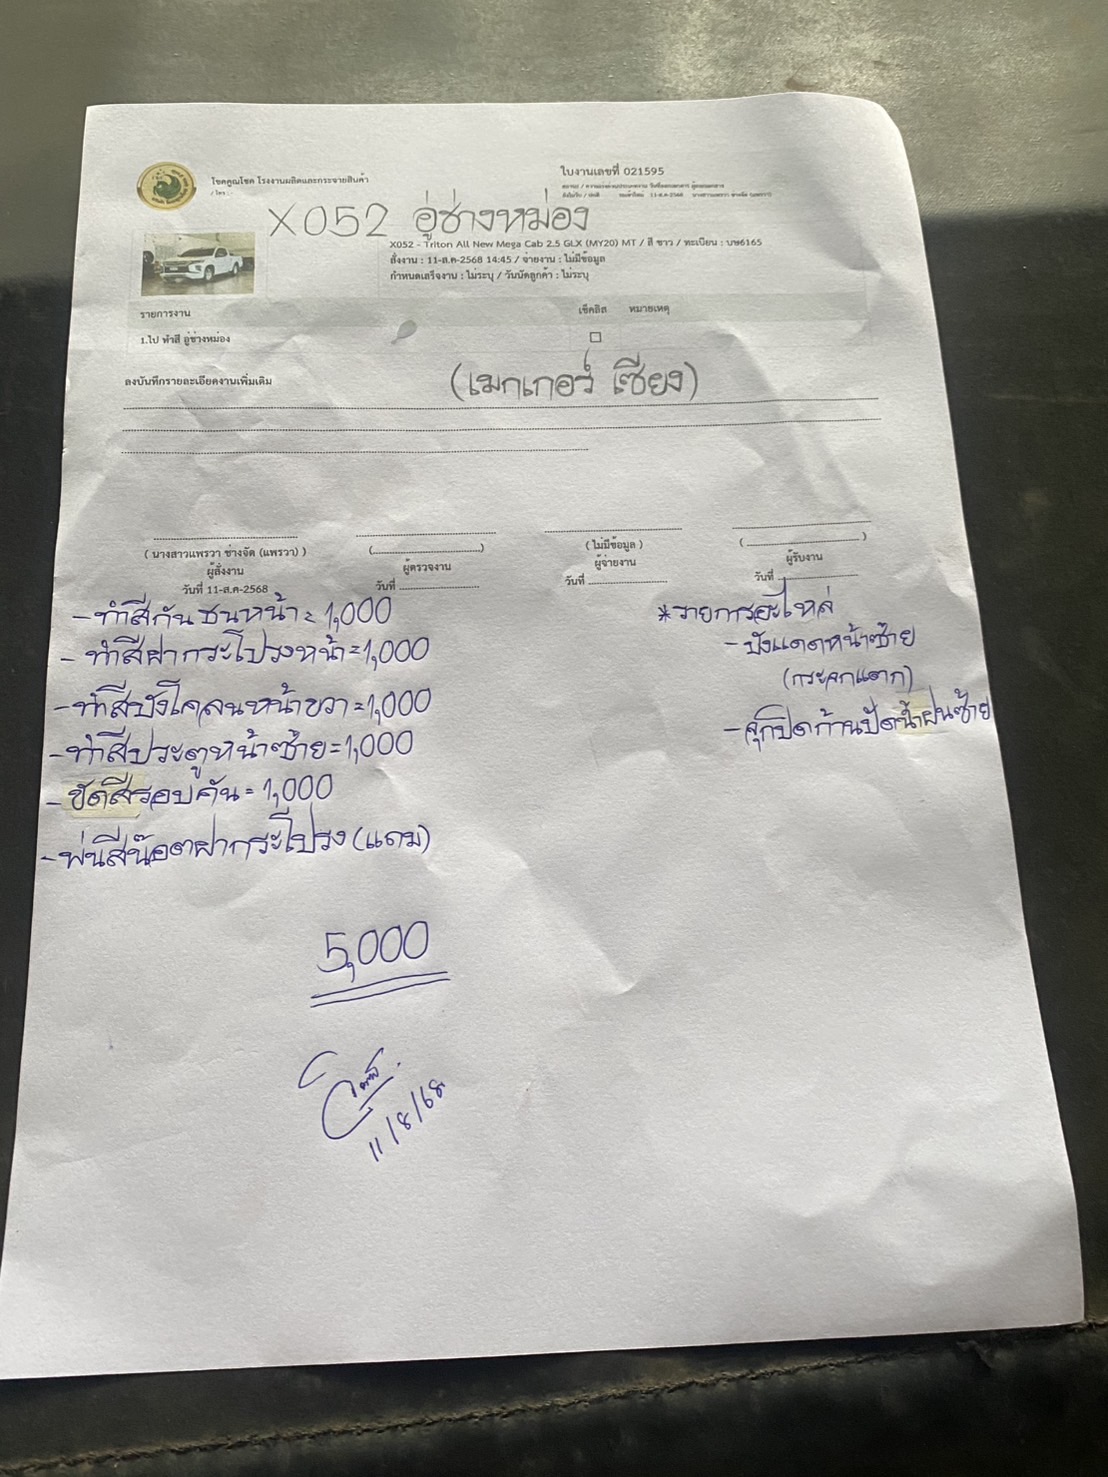 โชคคูณโชค โรงงานผลิตและกระจายสินค้า
/ โทร :-
ใบงานเลขที่ 021595
X052 อู่ช่างหม่อง
X052 - Triton All New Mega Cab 2.5 GLX (MY20) MT / สี ขาว / ทะเบียน : บษ6165
สั่งงาน : 11-ส.ค-2568 14:45 / จ่ายงาน : ไม่มีข้อมูล
กำหนดเสร็จงาน : ไม่ระบุ / วันนัดลูกค้า : ไม่ระบุ
รายการงาน เช็คลิส หมายเหตุ
1.ไป ทำสี อู่ช่างหม่อง
ลงบันทึกรายละเอียดงานเพิ่มเติม
(เมกเกอร์ เซียง)
( นางสาวแพรวา ช่างจัด (แพรวา) ) (..............................) ( ไม่มีข้อมูล ) (..............................)
ผู้สั่งงาน ผู้ตรวจงาน ผู้จ่ายงาน ผู้รับงาน
วันที่ 11-ส.ค-2568 วันที่ ...................... วันที่ ...................... วันที่ ......................
- ทำสีกันชนหน้า = 1,000
- ทำสีฝากระโปรงหน้า = 1,000
- ทำสีบังโคลนหน้าขวา = 1,000
- ทำสีประตูหน้าซ้าย = 1,000
- ขัดสีรอบคัน = 1,000
- พ่นสีน๊อตฝากระโปรง (แถม)
*รายการอะไหล่
- บังแดดหน้าซ้าย
(กระจกแตก)
- จุกปิดก้านปัดน้ำฝนซ้าย
5,000
11/8/68